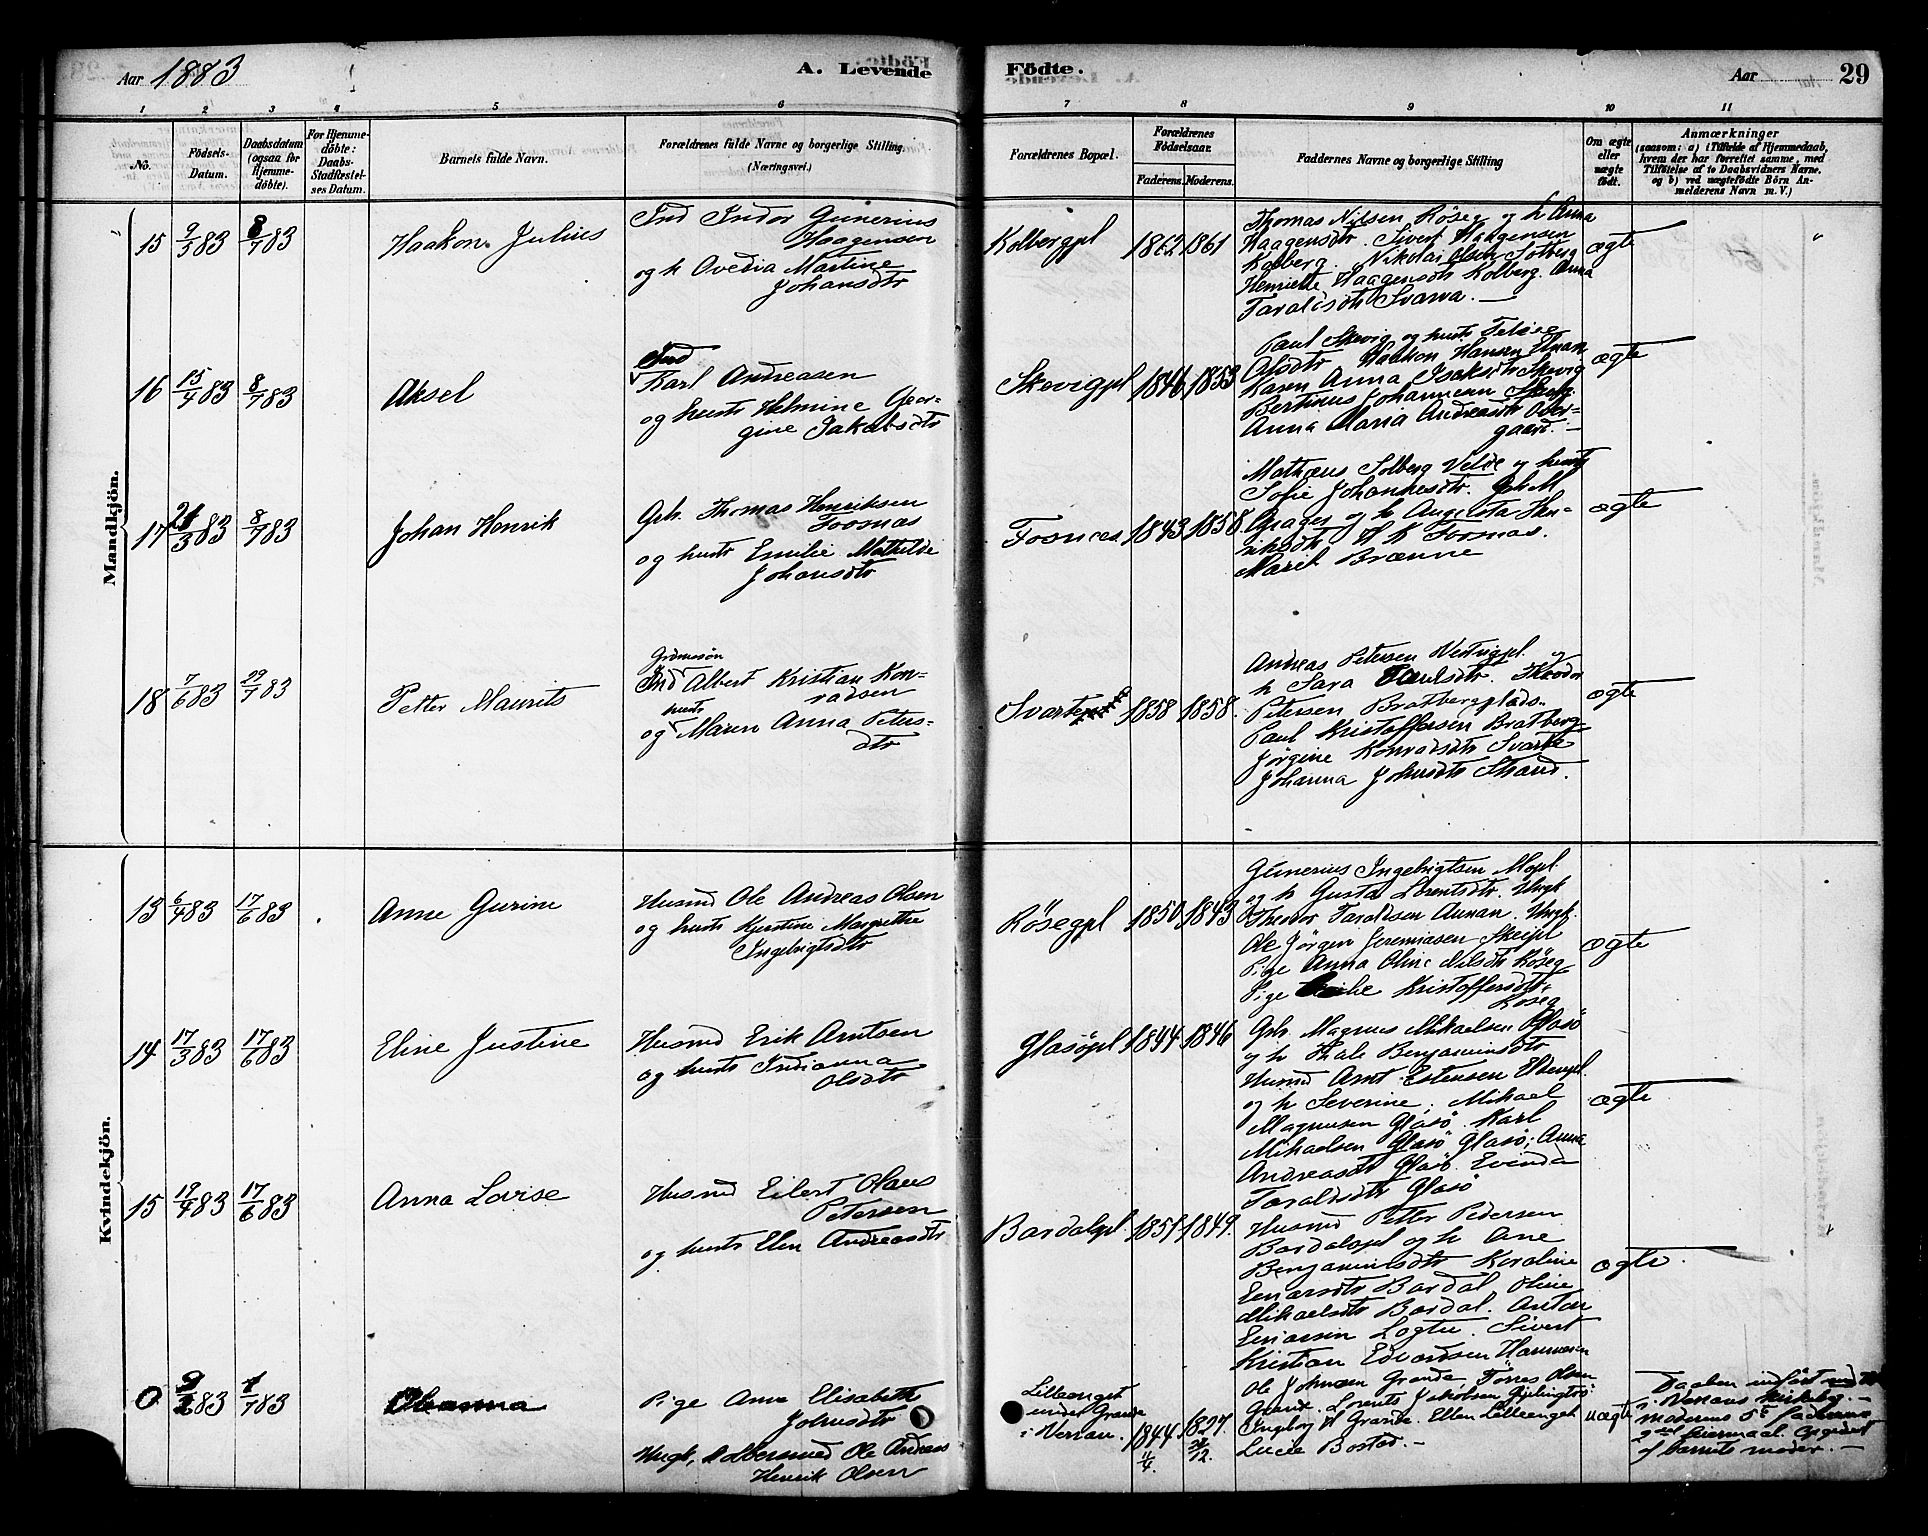 Aar 1883
A. Levende
Födte.
Aar
29
1 2 3 4 5 6 7 8 9 10 11
No.
Födsels-
Datum.
Daabsdatum
(ogsaa for
Hjemme-
döbte).
For Hjemme-
döbte:
Daabs-
Stadfæstel-
ses Datum.
Barnets fulde Navn.
Forældrenes fulde Navne og borgerlige Stilling.
(Næringsvei.)
Forældrenes Bopæl.
Forældrenes
Födselsaar.
Faderens. Moderens.
Faddernes Navne og borgerlige Stilling
Om ægte
eller
uægte
födt.
Anmærkninger
(saasom: a) i Tilfælde af Hjemmedaab,
hvem der har forrettet samme, med
Tilföielse af to Daabsvidners Navne.
og b) ved uægtefödte Börn An-
melderens Navn m. V.)
Mandkjön.
15 9/3 83 8/7 83
Haakon Julius
Ind Indor Gunerius
Haagensen
og h Ovedia Martine
Johansdtr
Kolbergpl 1862 1861
Thomas Nilsen Röseg og h Anna
Haagensdtr. Sivert Haagensen
Kolberg. Nikolai Olsen Solberg
Henriette Haagensdtr Kolberg. Anna
Taraldsdtr Svarva. —
ægte
16 15/4 83 8/7 83
Aksel
Ind
Karl Andreasen
og hustr Helmine Geor-
gine Jakobsdtr
Skevigpl 1846 1853
Paul Skevig og hustr
Olsdtr Haakon Hansen
Karen Anna Isaksdtr Skevig
Bertinus Johannesen
Anna Maria Andreasdtr Over-
gaard. —
ægte
17 21/3 83 8/7 83
Johan Henrik
Grh. Thomas Henriksen
Foosnæs
og hustr Emilie Mathilde
Johansdtr
Foosnæs 1843 1858
Mathæus Solberg Velde og hustr
Sofie Johannesdtr.
og h Augusta Hen-
riksdtr H K Foosnæs.
Marit Brænne
ægte
18 7/6 83 29/7 83
Petter Maurits
Grdmesön
Ind Albert Kristian Kon-
radsen
hustr
og Maren Anna Peters-
dtr
Svarte 1858 1858.
Andreas Petersen Vestvigpl. og
h Sara Paulsdtr. Theodor
Petersen Bratbergplads.
Paul Kristoffersen Bratberg
Jörgine Konradsdtr Svarte
Johanna Johnsdtr Strand.
ægte
Kvindekjön.
13 6/4 83 17/6 83
Anne Gurine
Husmd Ole Andreas Olsen
og hustr Kjerstine Margrethe
Ingebrigtsdtr
Rösegpl 1850 1843
Gunerius Ingebrigtsen Mopl
og h Gusta Lorentsdtr. Ungk
Theodor Taraldsen Aunan. Ungk.
Ole Jörgen Jeremiasen Skeipl
Pige Anna Oline Nilsdtr Röseg
Pige Kristoffersdtr
Röseg
ægte
14 17/3 83 17/6 83
Eline Justine
Husmd Erik Arntsen
og hustr Indianna
Olsdtr
Glasöpl 1844 1846
Grh. Magnus Mikaelsen Glasö
og h Thale Benjaminsdtr
Husmd Arnt Estensen
og h Severine. Mikael
Magnusen Glasö. Karl
Mikaelsen Glasö Glasö; Anna
Andreasdtr Glasö. Evinda
Taraldsdtr Glasö
ægte
15 19/4 83 17/6 83
Anna Lovise
Husmd Eilert Olaus
Petersen
og hustr Elen Andreasdtr
Bardalpl 1851 1849.
Husmd Petter Pedersen
Bardalspl og h Ane
Benjaminsdtr Karoline
Einarsdtr Bardal Oline
Mikaelsdtr Bardal. Anton
Einarsen Logtu. Sivert
Kristian Edvardsen Hammeren
ægte
0 9/2 83 1/7 83
Oleanna
Pige Anne Elisabeth
Johnsdtr
Ungk, Ole Andreas
Henrik Olsen
Lilleenget
under Grande
i Verran.
1844 11/4. 1827. 24/12.
Ole Johnsen Grande Törres Olsen
Grand. Lorents Jakobsen
Ingeborg M Grande. Ellen Lilleenget
Lucie Bostad. —
uægte
Daaben indfört
i Verrans Kirkebog. —
moderens 5te faderens
2det leiermaal. Opgivet
af barnets moder. —